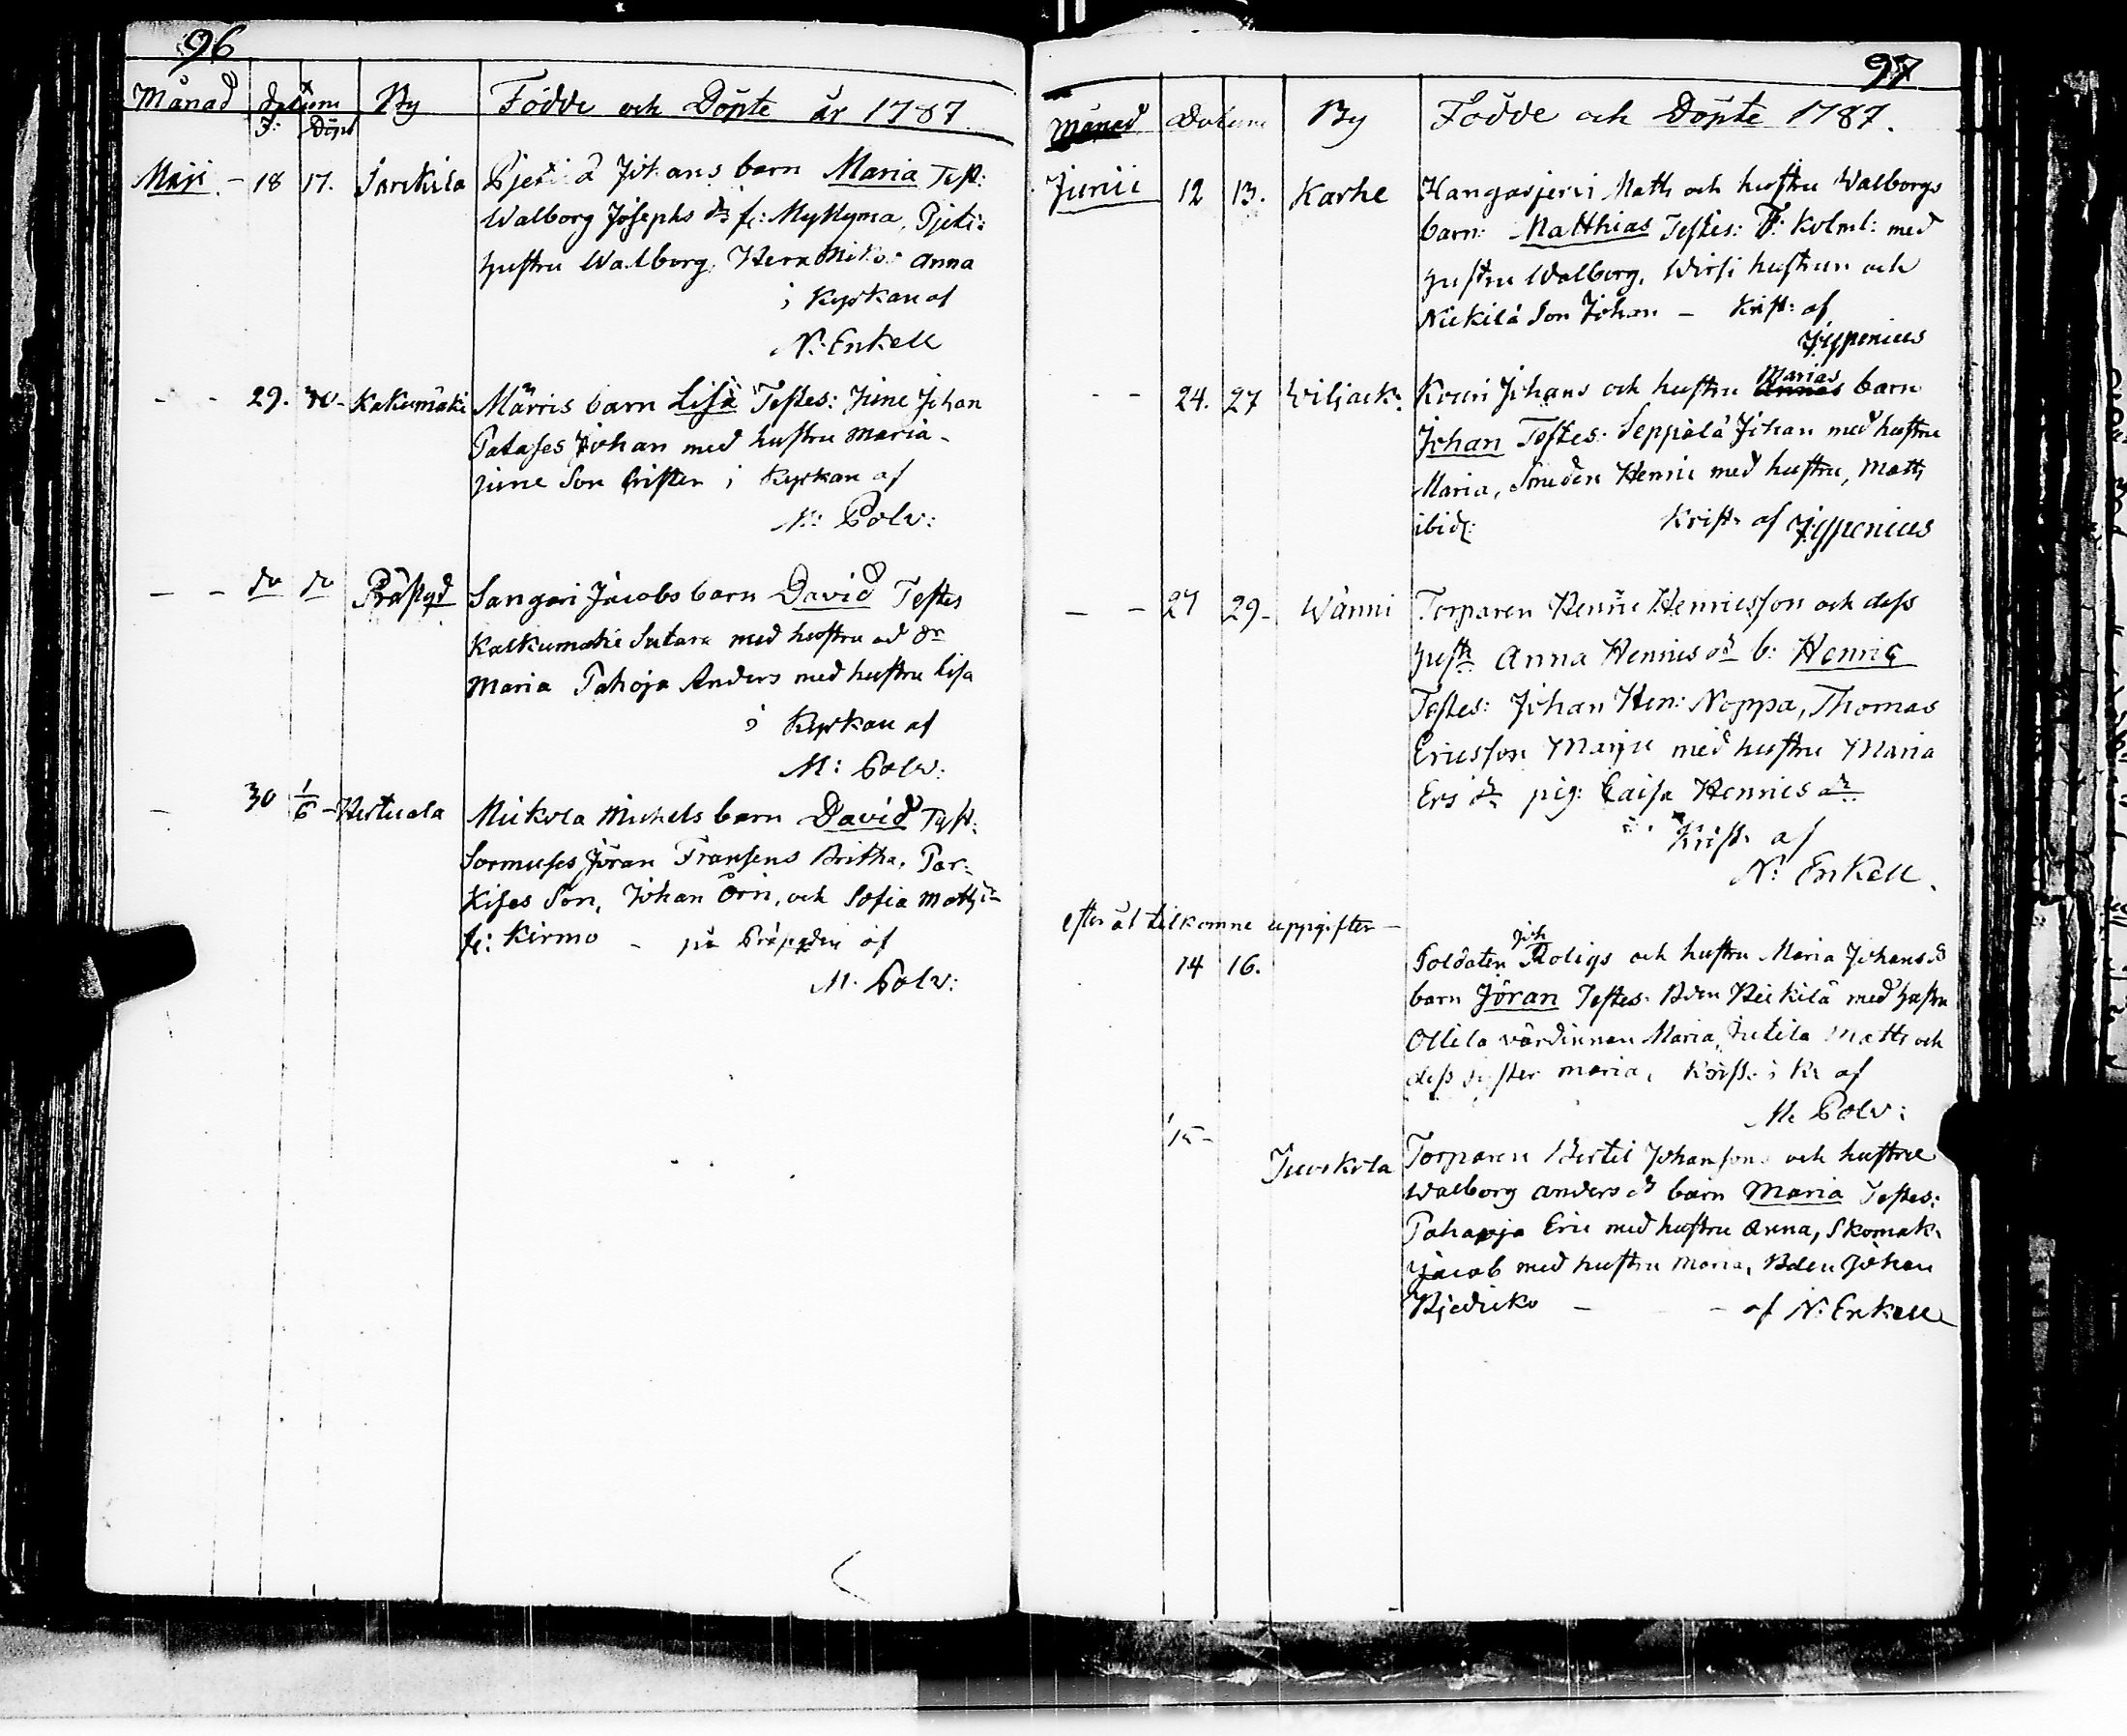 96
Månad Datum By Födde och Döpte år 1787
F: Döpt
Maji - 18 17. Sarckila Johans barn Maria Test:
Walborg Josephs dr fr: Myllyma, Pjeti:
hustru Walborg, Anna
i Kyrkan af
N: Enkell
- - 29. 30- Kakumäki Märris barn Lisa Testes: June Johan
Patases Johan med hustru Maria -
June Son Crister i Kyrkan af
M: Polv:
- - do do Prästgd Sangari Jacobs barn David Testes
Kalkumäki Sutare med hustru ad dr
Maria Pahoja Anders med hustru Lisa
i Kyrkan af
M: Polv:
- 30 1/6 - Hertuala Mickola Michels barn David Test:
Sormuses Jöran Fransens Britha, Par:
kises Son, Johan Örn, och Sofia Matts dr
fr: Kirmo - på Prästgden af
M. Polv:
97
Månad Datum By Födde och Döpte 1787.
Junii 12 13. Karhe Kangasjervi Matts och hustru Walborgs
barn: Matthias Testes: F: Kolml: med
hustru Walborg, Wirsi hustrun och
Nickilä Son Johan - Krist: af
Jyppenius
Marias
- - 24. 27 Wiljack: Kouri Johans och hustru Annas barn
Johan Testes: Seppälä Johan med hustru
Maria, Smeden Henric med hustru, Matts
ibid: Krist: af Jyppenius
- - 27 29- Wänni Torparen Henric Henricsson och dess
hustr Anna Henrics dr b: Henric
Testes: Johan Hen: Noppa, Thomas
Ericsson Marju med hustru Maria
Ers dr pig: Caisa Henrics dr
Krist: af
N: Enkell.
efter åt tilkomne uppgifter -
Joh
14 16. Soldaten Roligs och hustru Maria Johans d
barn Jöran Testes: Bden Heikilä med hustru
Ollila värdinnan Maria, Jutila Matts och
dess syster Maria, Krist: i K: af
M. Polv:
15 - Juoskola Torparen Bertil Johansons och hustru
Walborg Anders dr barn Maria Testes:
Pahaoja Eric med hustru Anna, Skomak:
Jacob med hustru Maria, Bden Johan
- - af N: Enkell